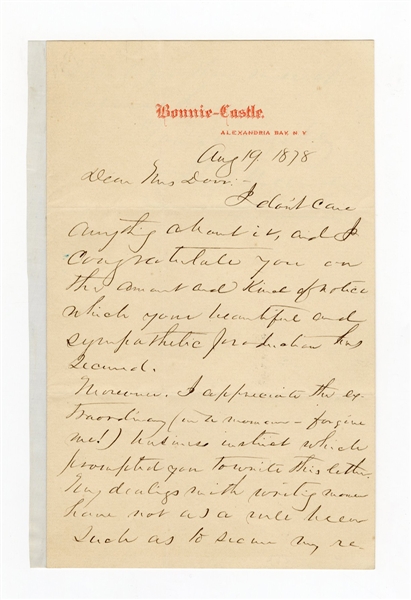 Bonnie-Castle.
ALEXANDRIA BAY, N Y
Aug 19. 1878
Dear Mrs Dorr:-
I don't care
anything about it, and I
congratulate you on
the amount and kind of notice
which your beautiful and
sympathetic production has
secured.
Moreover, I appreciate the ex-
traordinary (in a woman - forgive
me!) business instinct which
prompted you to write this letter.
My dealings with writing women
have not as a rule been
such as to secure my re-